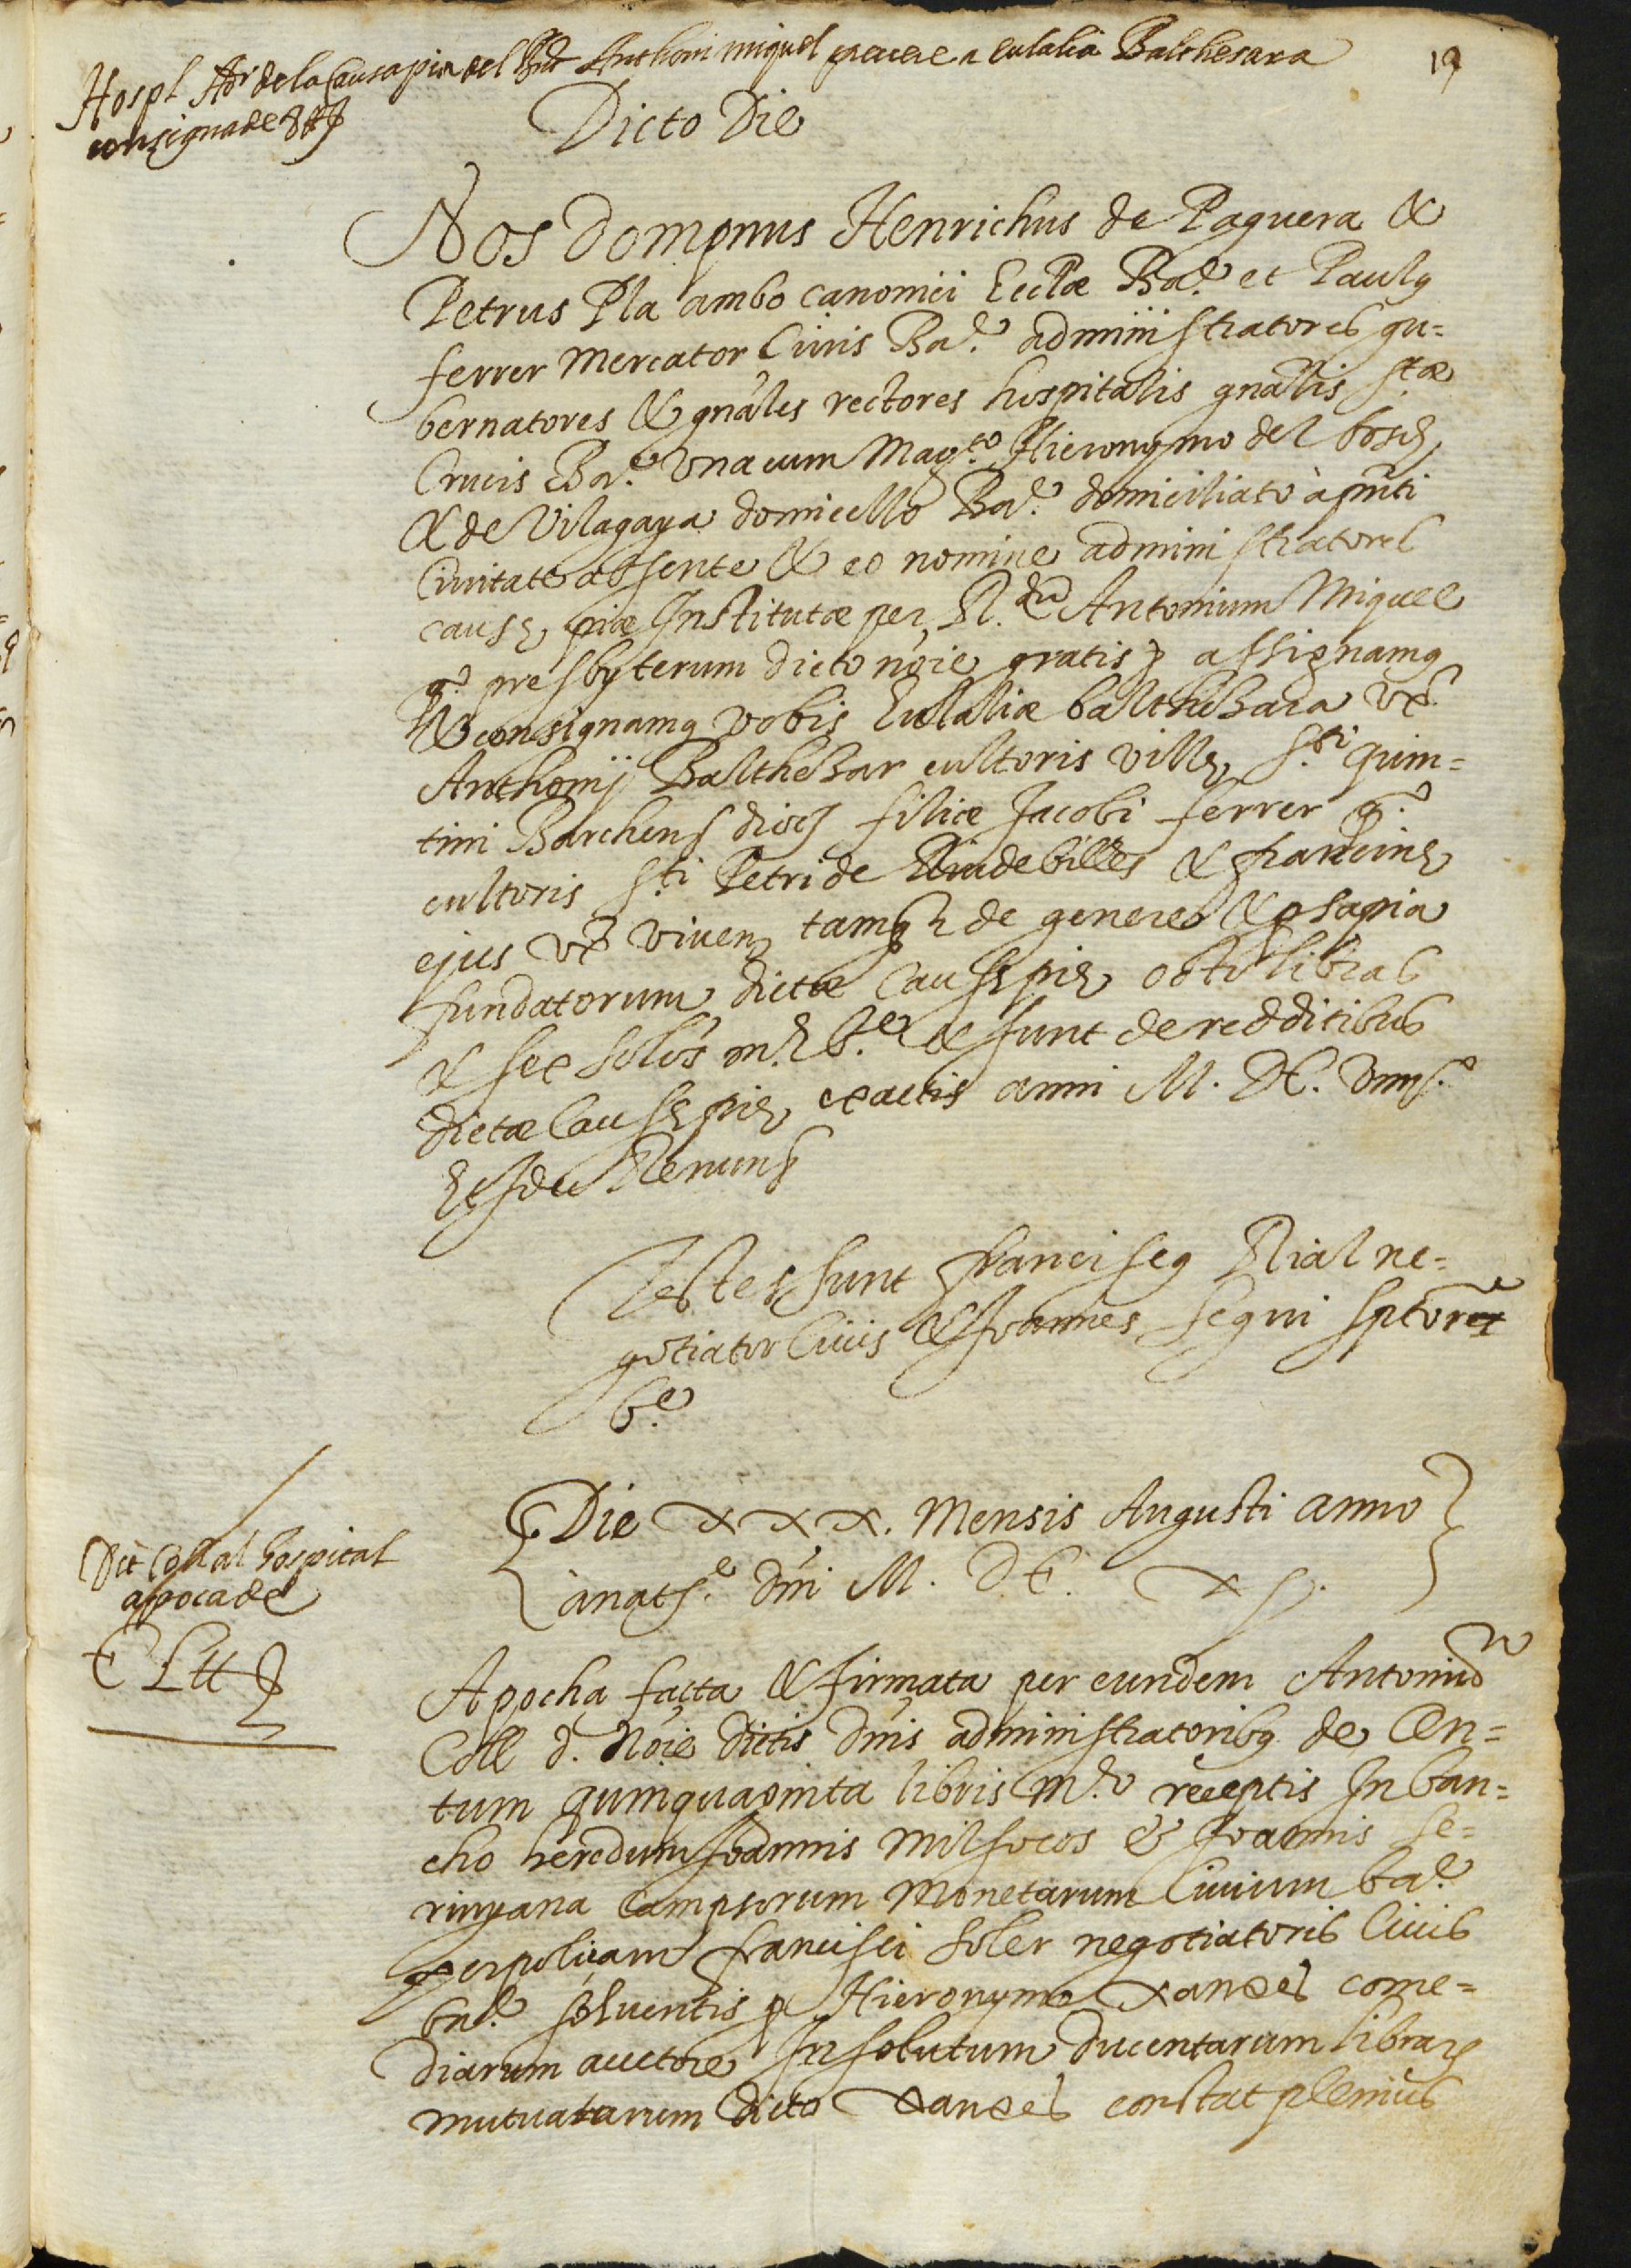 Hospl Ador de la Causa pia del Rnt Anthoni miquel prevere a eulalia Balthesara
consigna de 8 ₶
19
Dicto Die
Nos Dompnus Henrichus de Paguera &
Petrus Pla ambo canonici Eccliæ Ba.e et Paulq
ferrer Mercator Civis Ba.e administratores gu=
bernatores & gnales rectores hospitalis gnalis S.tæ
Crucis Ba.e Una cum Mag.co Hieronymo del bosch
& de Vilagaya domicello Ba.e domiciliato à pnti
Civitate absente & eo nomine administratores
causæ piæ Institutæ per R.du Antonium Miquel
q.o presbyterum dicto noie gratis assignamq
& consignamq vobis Eulaliæ balthezara ux
Anthonij Balthezar cultoris villæ S.ti quin=
tini Barchens dioc filiæ Jacobi ferrer q.o
cultoris S.ti Petri de Riudebilles & franc
ejus ux viven tamq de genere & psapia
fundatorum dictæ Causæ piæ octo libras
& sex solos m. b.e & sunt de redditibus
dictæ Causæ piæ exactis anni M. DC.
Et Ideo Renuns
Testes sunt franciscq Rial ne=
gotiator Civis & Joannes Segui sptores
b.e
Die xxx. Mensis Augusti anno
anat.e Dni M. DC. x
Dit Coll al hospital
apoca de
C L ₶
Apocha facta & firmata per eundem Antonium
Coll d. Noie dictis Dnis administratoribq de Cen=
tum quinquaginta libris m. receptis In ban=
cho heredum Joannis Milsocos & Joannis Se=
rinyana Campsorum Monetarum Civium ba.e
per polizam francisci Soler negotiatoris Civis
bne. solventis p Hieronymo Xanxes come=
diarum auctore In solutum ducentarum librar
mutuatarum dicto Xanxes constat plenius